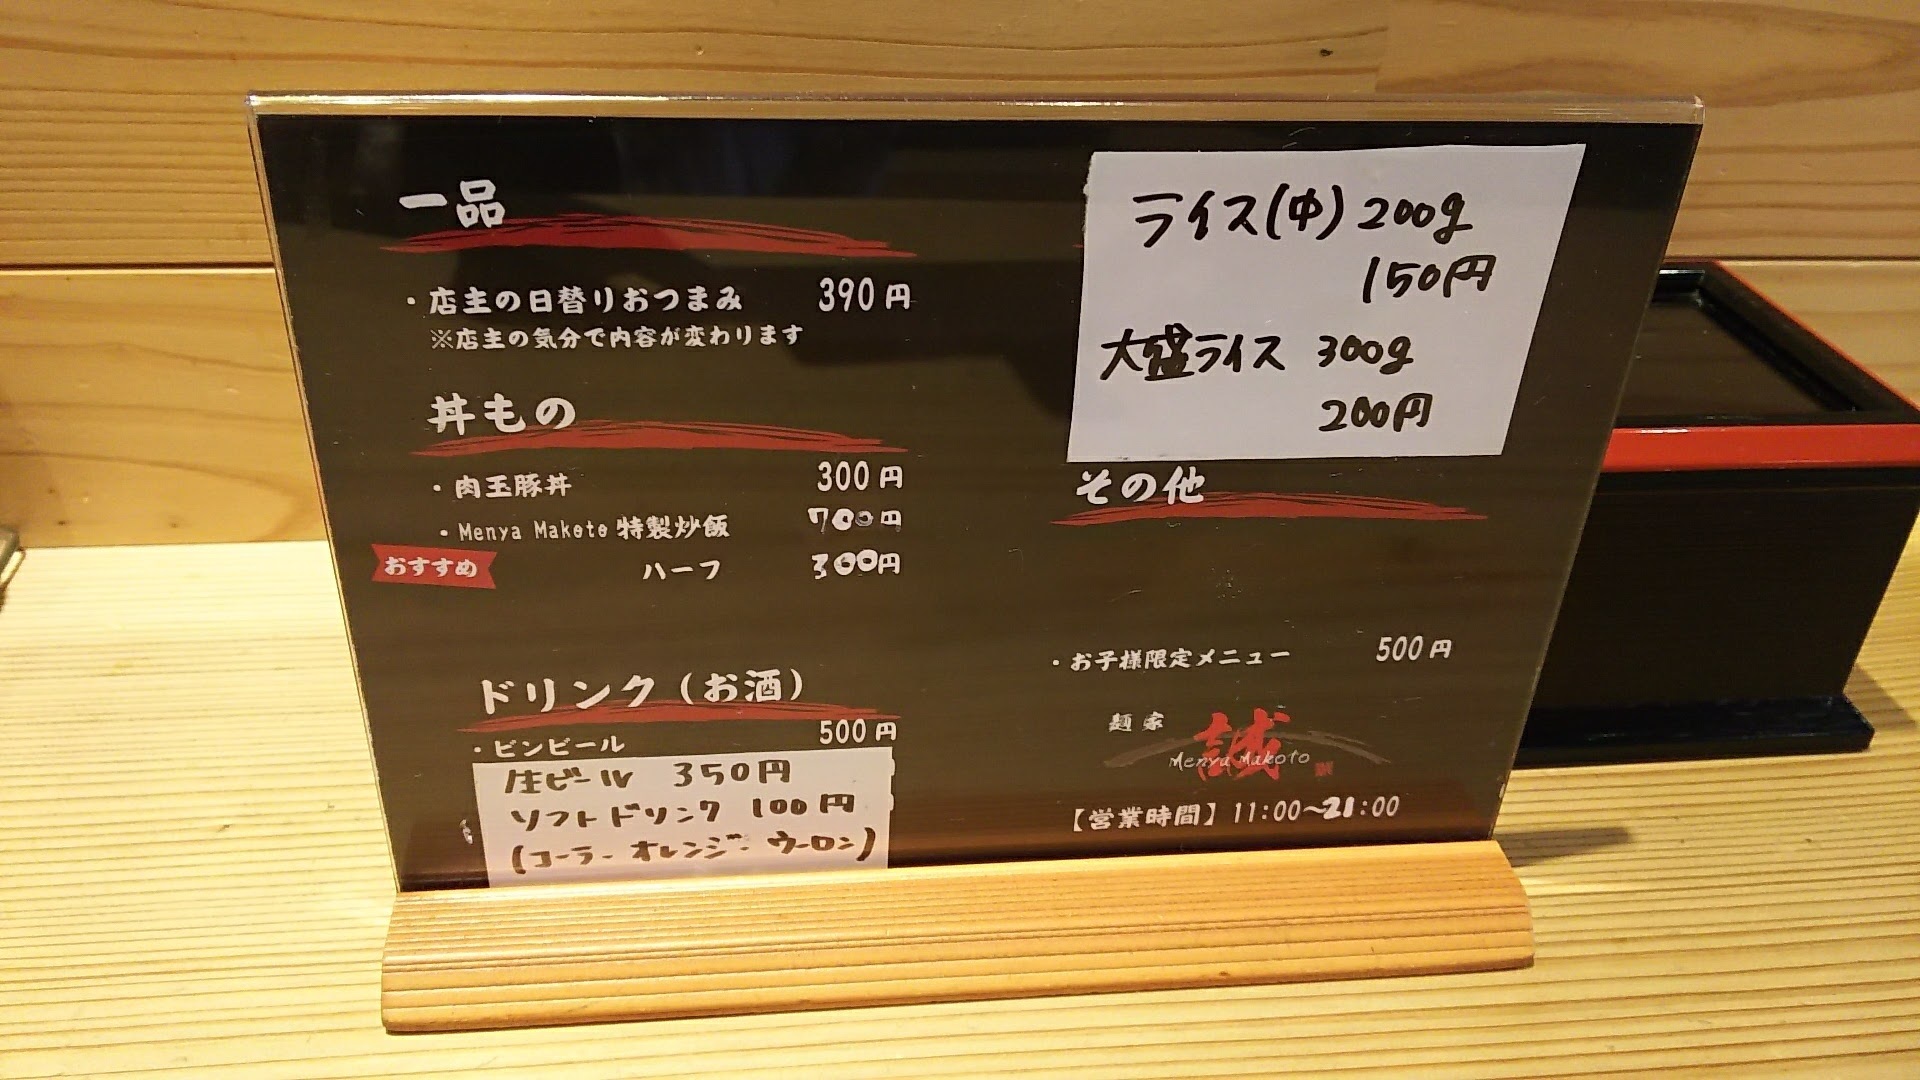 一品
・店主の日替りおつまみ 390円
※店主の気分で内容が変わります
丼もの
・肉玉豚丼 300円
・Menya Makoto 特製炒飯 700円
おすすめ ハーフ 300円
ドリンク(お酒)
・ビンビール 500円
生ビール 350円
ソフトドリンク 100円
(コーラ・オレンジ・ウーロン)
ライス(中) 200g
150円
大盛ライス 300g
200円
その他
・お子様限定メニュー 500円
麺家 誠
Menya Makoto
【営業時間】11:00~21:00